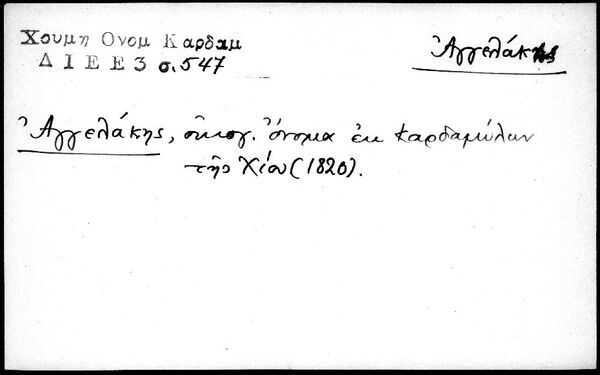 Χουμη Ονομ Καρδαμ
Δ Ι Ε Ε 3 σ. 547
Ἀγγελάκης
Ἀγγελάκης, οἰκογ. ὄνομα ἐκ Καρδαμύλων
τῆς Χίου (1820).